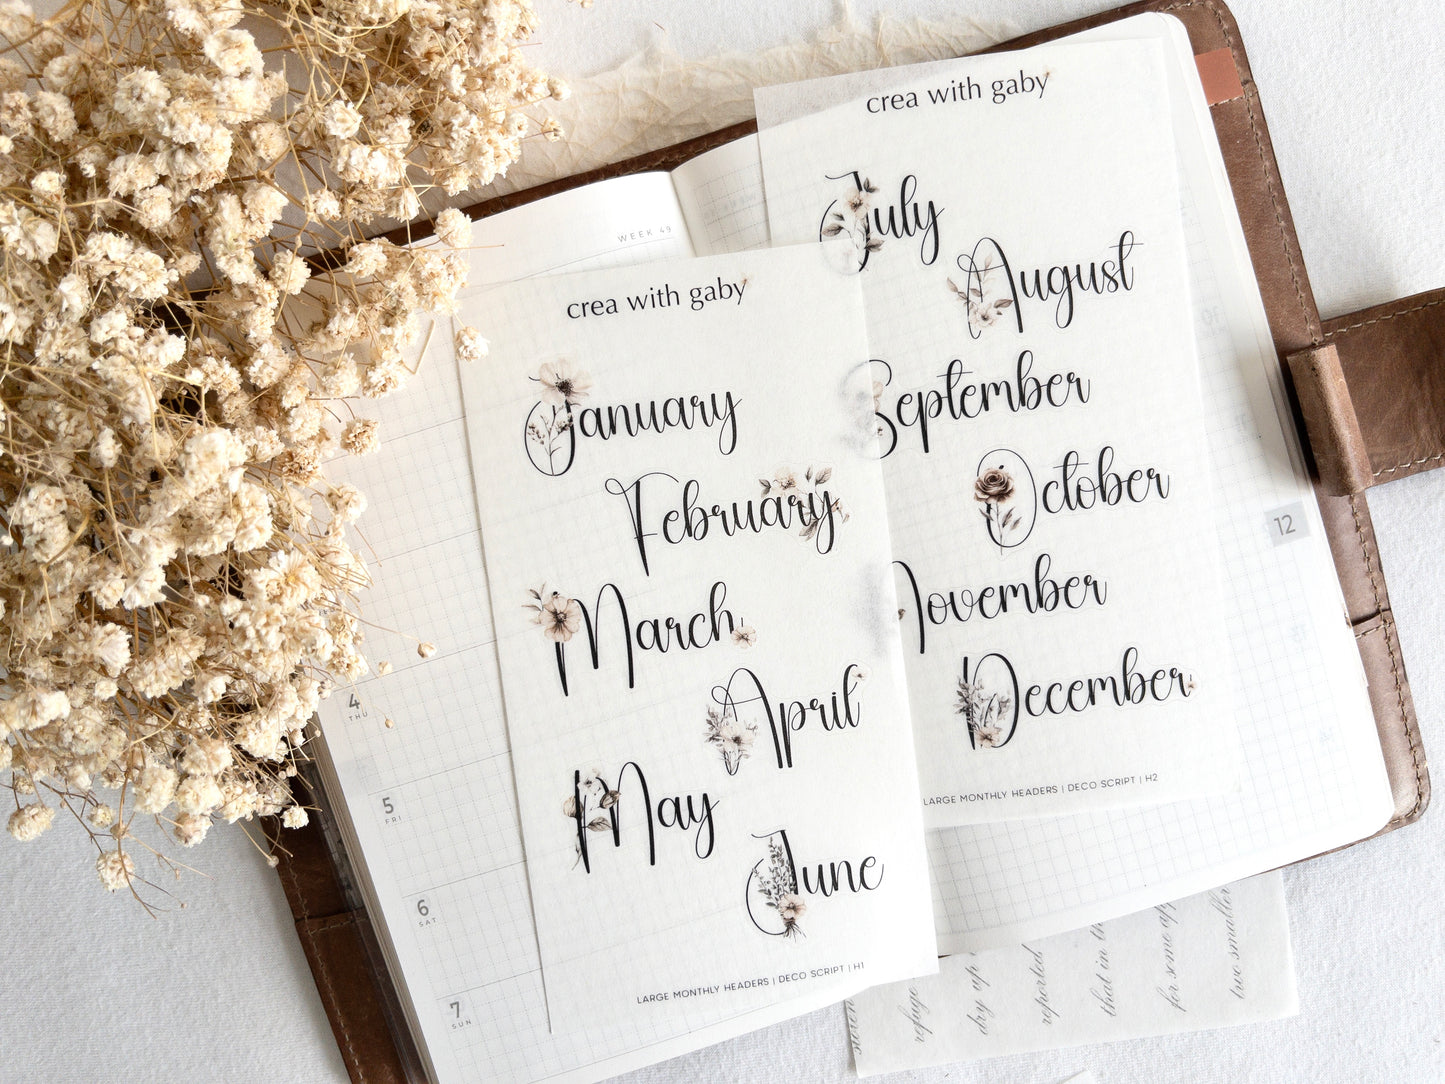 WEEK 49
crea with gaby
January
February
March
April
May
June
LARGE MONTHLY HEADERS | DECO SCRIPT | H1
crea with gaby
July
August
September
October
November
December
LARGE MONTHLY HEADERS | DECO SCRIPT | H2
12
4
THU
5
FRI
6
SAT
7
SUN
refuge
dry up
reported
that in th
for some ap
two smaller